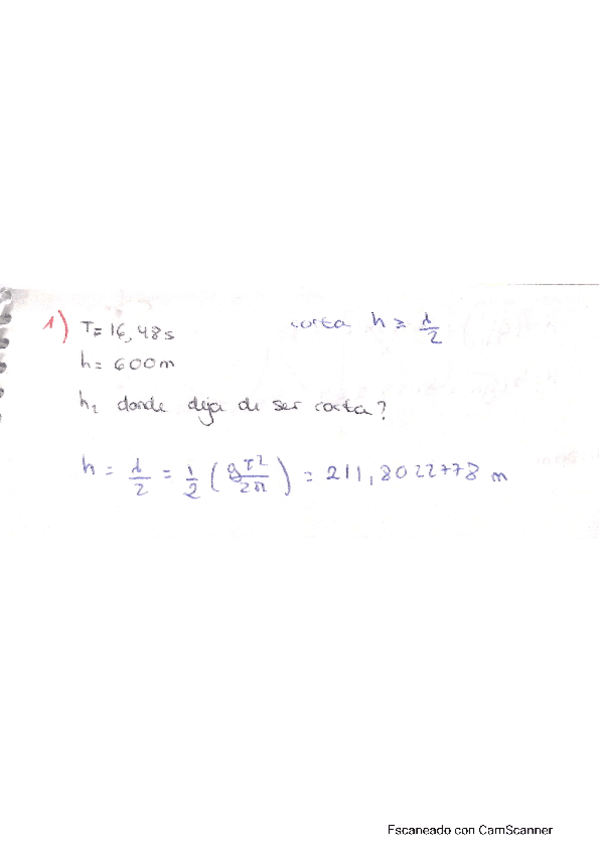 1) T= 16,48s corta h ≥ λ/2
h= 600m
h₂ donde deja de ser corta?
h = λ/2 = 1/2 (gT²/2π) = 211,8022778 m
Escaneado con CamScanner